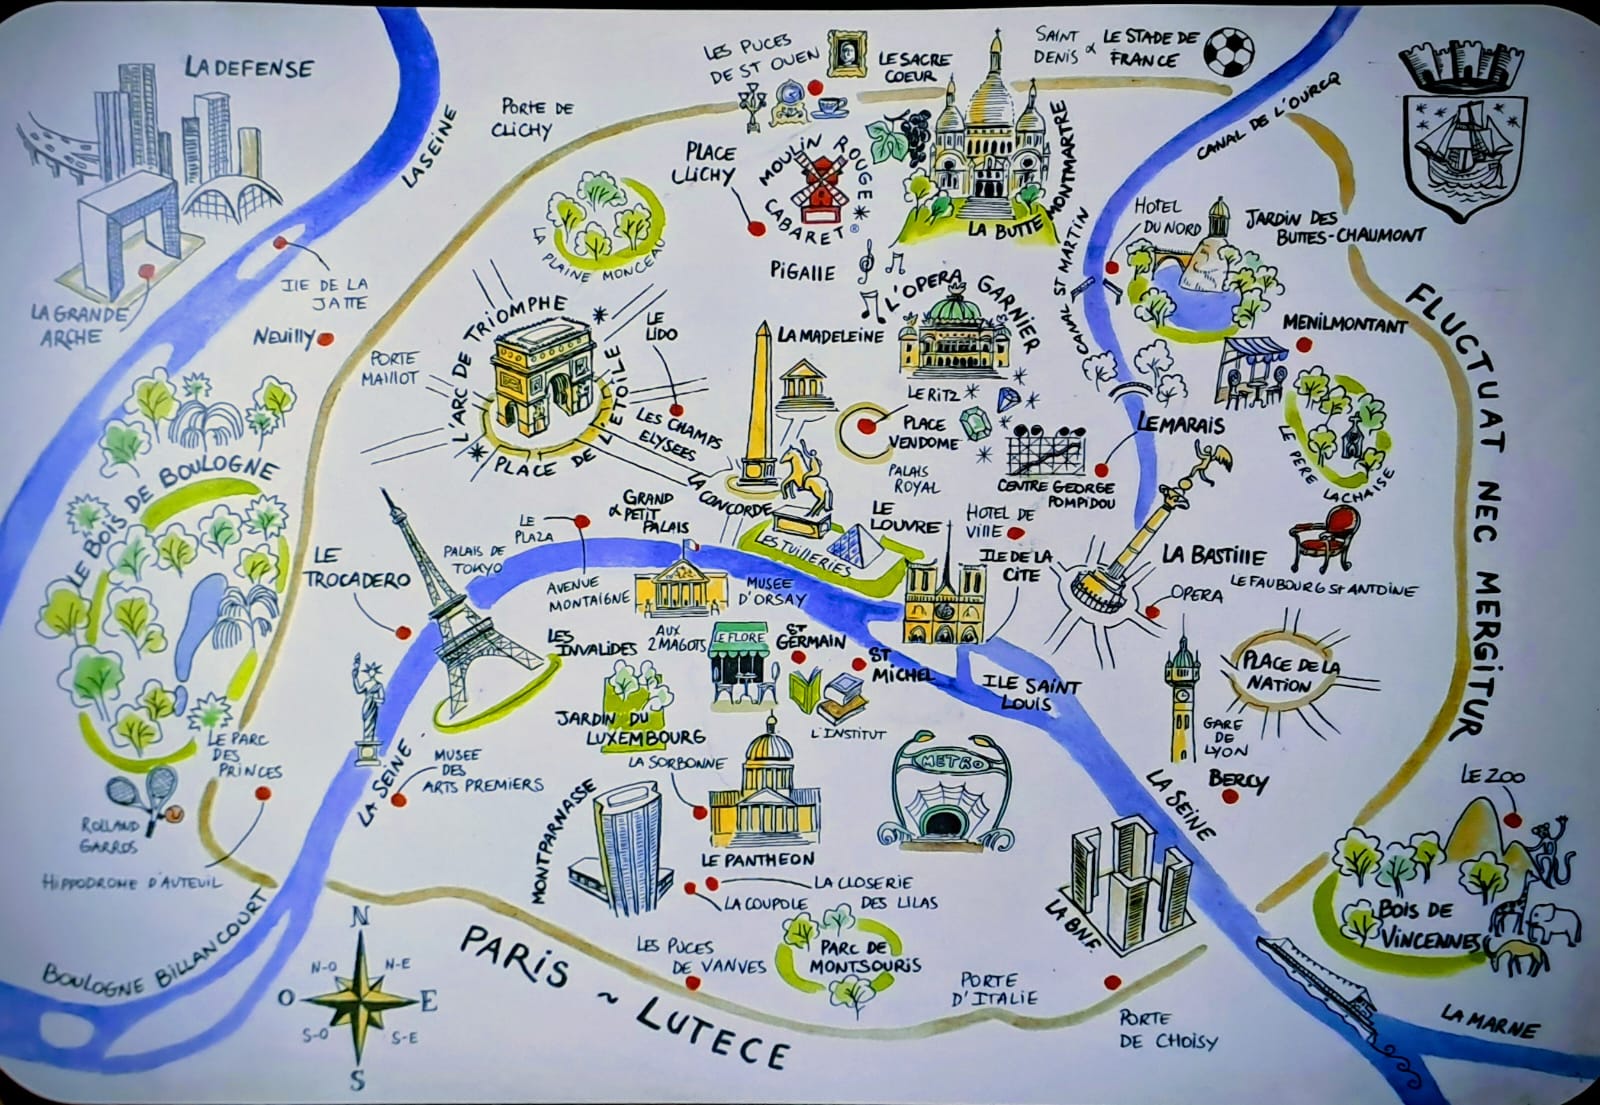 LA DEFENSE
LA GRANDE
ARCHE
LA SEINE
ILE DE LA
JATTE
NEUILLY
PORTE DE
CLICHY
LES PUCES
DE ST OUEN
LE SACRE
COEUR
SAINT
DENIS &
LE STADE DE
FRANCE
CANAL DE L'OURCQ
PLACE
CLICHY
MOULIN ROUGE
CABARET
PIGALLE
LA BUTTE MONTMARTRE
LA PLAINE MONCEAU
CANAL ST MARTIN
HOTEL
DU NORD
JARDIN DES
BUTTES-CHAUMONT
MENILMONTANT
LE PERE LACHAISE
FLUCTUAT NEC MERGITUR
PORTE
MAILLOT
L'ARC DE TRIOMPHE
PLACE DE L'ETOILE
LE
LIDO
LES CHAMPS
ELYSEES
LA MADELEINE
L'OPERA GARNIER
LE RITZ
PLACE
VENDOME
PALAIS
ROYAL
CENTRE GEORGE
POMPIDOU
LE MARAIS
LA CONCORDE
GRAND
& PETIT
PALAIS
LE
PLAZA
AVENUE
MONTAIGNE
PALAIS DE
TOKYO
LE
TROCADERO
LE BOIS DE BOULOGNE
LES TUILERIES
LE
LOUVRE
HOTEL DE
VILLE
ILE DE LA
CITE
LA BASTILLE
LE FAUBOURG ST ANTOINE
OPERA
MUSEE
D'ORSAY
LES
INVALIDES
AUX
2 MAGOTS
LE FLORE
ST
GERMAIN
ST
MICHEL
ILE SAINT
LOUIS
PLACE DE LA
NATION
GARE
DE
LYON
BERCY
LE ZOO
JARDIN DU
LUXEMBOURG
L'INSTITUT
LA SORBONNE
LE PANTHEON
METRO
MONTPARNASSE
LA CLOSERIE
DES LILAS
LA COUPOLE
LA SEINE
MUSEE
DES
ARTS PREMIERS
LE PARC
DES
PRINCES
ROLLAND
GARROS
HIPPODROME D'AUTEUIL
BOULOGNE BILLANCOURT
N
N-O
N-E
O
E
S-O
S-E
S
PARIS ~ LUTECE
LES PUCES
DE VANVES
PARC DE
MONTSOURIS
PORTE
D'ITALIE
PORTE
DE CHOISY
LA BNF
LA SEINE
BOIS DE
VINCENNES
LA MARNE